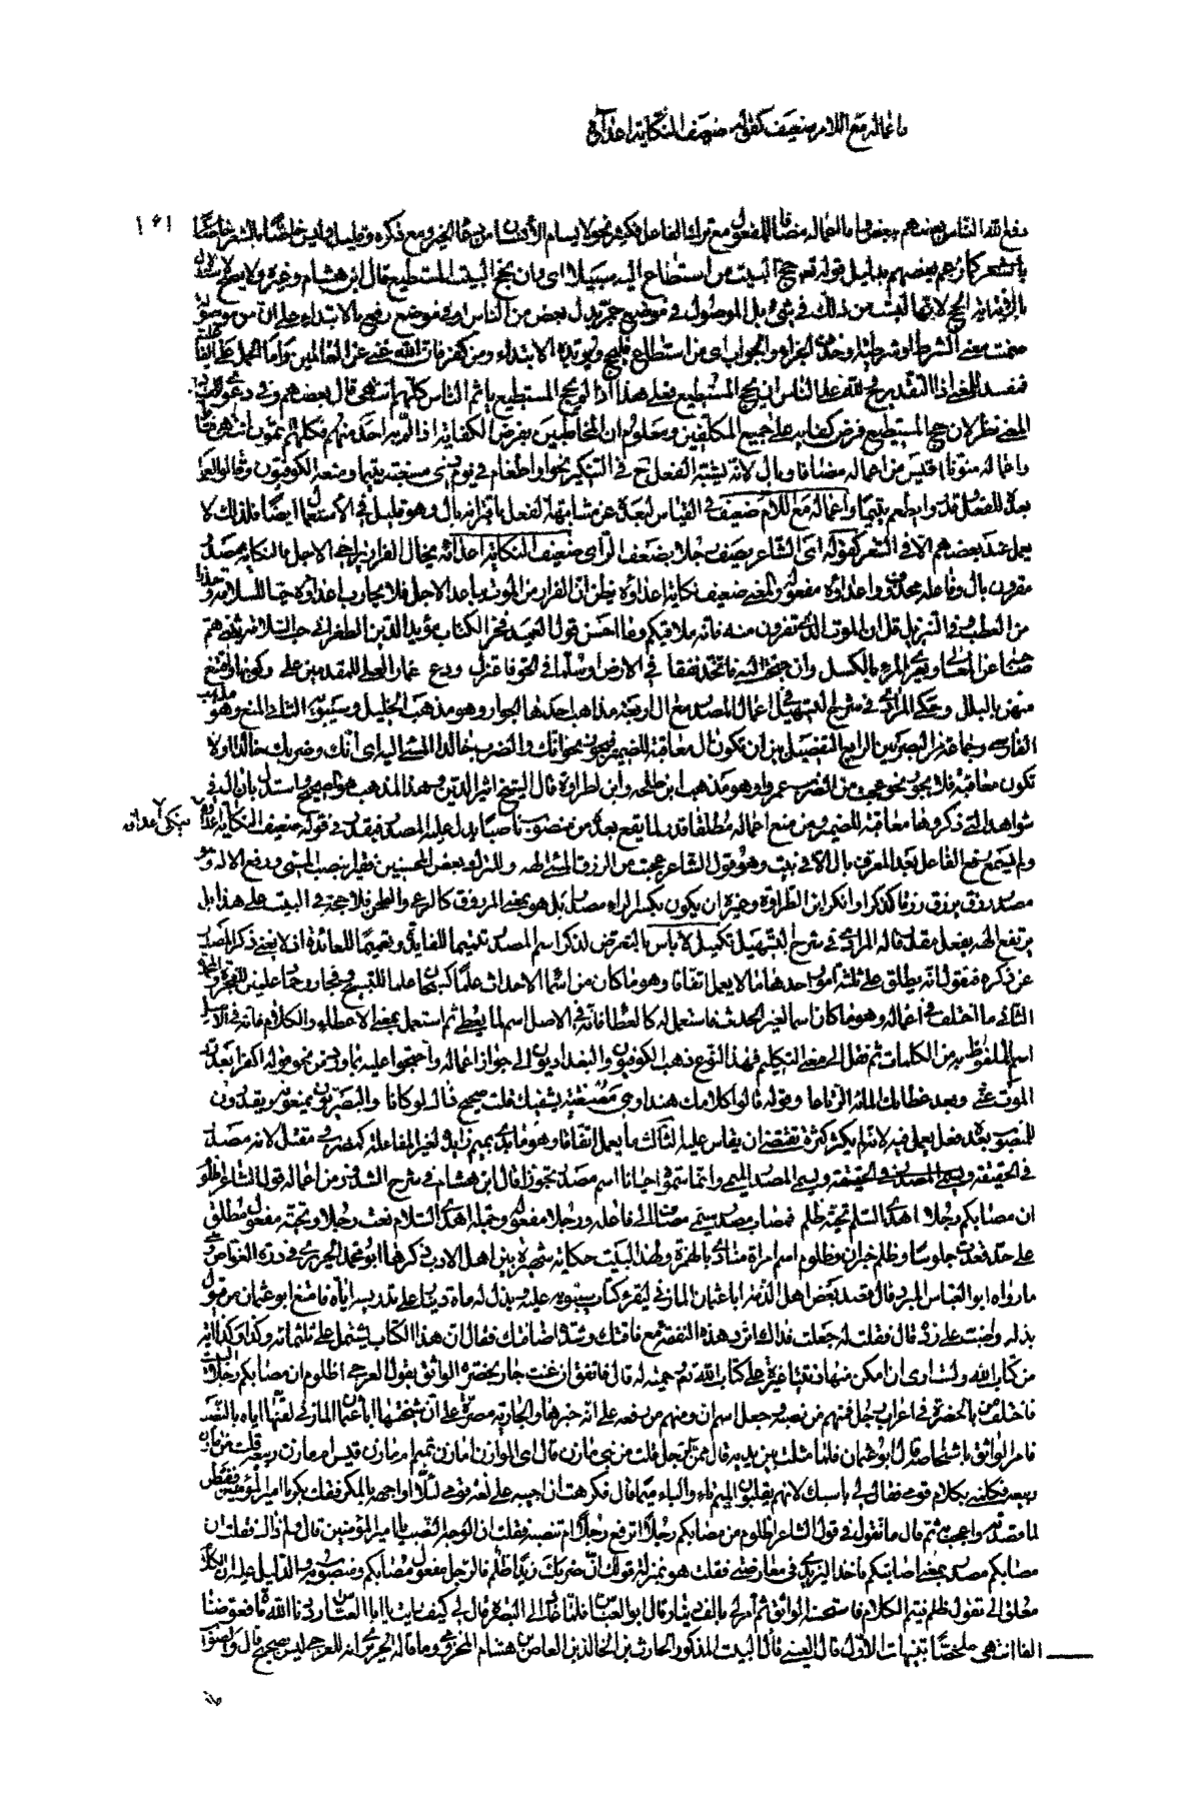 واعماله مع اللام ضعيف كقوله ضعيف النكاية اعداءه
١٤١
دفع الله الناس بعضهم ببعض واما اعماله مضافا للمفعول مع ترك الفاعل فكثير نحو لا يسام الانسان من دعاء الخير ومع ذكره قليل وليس خاصا بالشعر
كما زعم بعضهم بدليل قوله تعالى حج البيت من استطاع اليه سبيلا اى وان يحج البيت المستطيع قال ابن هشام وغيره ولا
الموصول في موضع جر بدل بعض من الناس او في موضع رفع بالابتداء على ان من موصولة
ضمنت معنى الشرط او شرطية وحذف الجزاء والجواب اى من استطاع فليحج ويؤيده الابتداء ومن كفر فان الله غني عن العالمين واما الحمل
المعنى اذ التقدير ولله على الناس ان يحج المستطيع فعلى هذا اذا لم يحج المستطيع ياثم الناس كلهم انتهى قال بعضهم وفي دعوى
المعنى نظر لان حج المستطيع فرض كفاية على جميع المكلفين ومعلوم ان المخاطبين بفرض الكفاية اذا لم
واعماله منونا اقيس من اعماله مضافا وبال لانه يشبه الفعل ح في التنكير نحو او اطعام في يوم ذي مسغبة يتيما ومنعه الكوفيون وقالوا
بعده للفعل واعماله مع اللام ضعيف في القياس لبعده عن مشابهة الفعل باقترانه بال وهو قليل في الاستعمال ايضا فلذلك لا
يعمل عند بعضهم الا في الشعر كقوله اى الشاعر يصف رجلا بضعف الراى ضعيف النكاية اعداءه يخال الفرار يراخي الاجل فالنكاية مصدر
مقرون بال وفاعله محذوف واعداءه مفعوله والمعنى ضعيف نكايته اعداءه يظن ان الفرار من الموت يباعد الاجل فلا يحارب اعداءه حبا للسلامة
في التنزيل قل ان الموت الذى تفرون منه فانه ملاقيكم وما احسن قول العميد فخر الكتاب مؤيد الدين الطغرائي حب السلامة يثني هم
صاحبه عن المعالي ويغري المرء بالكسل وان جنحت اليه فاتخذ نفقا في الارض او سلما في الجو فاعتزل ودع غمار العلى للمقدمين على ركوبها واقتنع
منهن بالبلل وحكى المرادي في شرح التسهيل في اعمال المصدر مع ال اربعة مذاهب احدها الجواز وهو مذهب الخليل وسيبويه الثاني المنع وهو مذهب
الفارسي وجماعة من البصريين الرابع التفصيل بين ان تكون ال معاقبة للضمير فيجوز نحو انك والضرب خالدا المسئ اليه اى انك وضربك خالدا او لا
تكون معاقبة فلا يجوز نحو عجبت من الضرب عمرا وهو مذهب ابن طلحة وابن الطراوة قال الشيخ اثير الدين وهذا المذهب هو الصحيح
ومن منع اعماله مطلقا قدر لما يقع بعده من منصوب ناصبا يدل عليه المصدر فيقدر في قوله ضعيف النكاية اعداءه
ينكى اعداءه
ولم يسمع رفع الفاعل بعد المعرف بال الا في بيت وهو قول الشاعر عجبت من الرزق المسئ الهه وللترك بعض المحسنين فقيرا بنصب المسئ ورفع الاله
مصدر رزق يرزق رزقا كذكرا وانكر ابن الطراوة وغيره ان يكون بكسر الراء مصدرا بل هو بمعنى المرزوق كالرعي والطحن فلا حجة في البيت على هذا بل
يرتفع الهه بفعل مقدر قاله المرادي في شرح التسهيل تكميل لا باس بالتعرض لذكر اسم المصدر تتميما للفائدة وتعميما للعائدة اذ لا يغني ذكر المصدر
عن ذكره فنقول انه يطلق على ثلثة امور احدها ما لا يعمل اتفاقا وهو ما كان من اسماء الاحداث علما كسبحان علما للتسبيح وفجار وحماد علمين للفجرة والمحمدة
الثاني ما اختلف في اعماله وهو ما كان اسما لغير الحدث فاستعمل له كالعطاء فانه في الاصل اسم لما يعطى ثم استعمل بمعنى الاعطاء والكلام فانه في الاصل
اسم للملفوظ به من الكلمات ثم نقل الى معنى التكليم فهذا النوع ذهب الكوفيون والبغداديون الى جواز اعماله واحتجوا عليه بما ورد من نحو قوله اكفرا بعد رد
الموت عني وبعد عطائك المائة الرتاعا وقوله قالوا كلامك هندا وهي مصغية يشفيك قلت صحيح ذاك لو كانا والبصريون يمنعونه ويقدرون
للمنصوب بعده فعلا يعمل فيه لانه لم يكثر كثرة تقتضي ان يقاس عليه الثالث ما يعمل اتفاقا وهو ما بدئ بميم زائدة لغير المفاعلة كمضرب ومقتل لانه مصدر
في الحقيقة ويسمى المصدر الميمي وانما سموه احيانا اسم مصدر تجوزا قال ابن هشام في شرح الشذور من اعماله قول الشاعر اظلوم
ان مصابكم رجلا اهدى السلام تحية ظلم فمصابكم مصدر ميمي مضاف الى فاعله ورجلا مفعوله وجملة اهدى السلام نعت رجلا وتحية مفعول مطلق
على حد قعدت جلوسا وظلم خبر ان وظلوم اسم امراة منادى بالهمزة ولهذا البيت حكاية شهيرة بين اهل الادب ذكرها ابو محمد الحريري في درة الغواص وهي
ما رواه ابو العباس المبرد قال قصد بعض اهل الذمة ابا عثمان المازني ليقرء كتاب سيبويه عليه وبذل له ماة دينار على تدريسه اياه فامتنع ابو عثمان من قبول
بذله واضب على رده قال فقلت له جعلت فداك اترد هذه النفقة مع فاقتك وشدة اضاقتك فقال ان هذا الكتاب يشتمل على ثلثمائة وكذا وكذا اية
من كتاب الله ولست ارى ان امكن منها ذميا غيرة على كتاب الله وحمية له قال فاتفق ان غنت جارية بحضرة الواثق بقول العرجي اظلوم ان مصابكم رجلا البيت
فاختلف من بالحضرة في اعراب رجل فمنهم من نصبه وجعله اسم ان ومنهم من رفعه على انه خبرها والجارية مصرة على ان شيخها ابا عثمان المازني لقنها اياه بالنصب
فامر الواثق باشخاصه قال ابو عثمان فلما مثلت بين يديه قال ممن الرجل قلت من بني مازن قال اى الموازن امازن تميم ام مازن قيس ام مازن ربيعة قلت من مازن
ربيعة فكلمني بكلام قومي فقال لي باسبك لانهم يقلبون الميم باء والباء ميما قال فكرهت ان اجيبه على لغة قومي لئلا اواجهه بالمكر فقلت بكر يا امير المؤمنين ففطن
لما قصدته واعجب به ثم قال ما تقول في قول الشاعر اظلوم ان مصابكم رجلا اترفع رجلا ام تنصبه فقلت ان الوجه النصب يا امير المؤمنين قال ولم ذاك فقلت ان
مصابكم مصدر بمعنى اصابتكم فاخذ اليزيدي في معارضتي فقلت هو بمنزلة قولك ان ضربك زيدا ظلم فالرجل مفعول مصابكم ومنصوب به والدليل عليه ان الكلام
معلق الى ان تقول ظلم فيتم الكلام فاستحسنه الواثق ثم امر لي بالف دينار قال ابو العباس فلما عاد الى البصرة قال لي كيف رايت يا ابا العباس رددنا لله ماة فعوضنا
الفا انتهى ملخصا تنبيهات الاول قال العيني قائل البيت المذكور الحارث بن خالد بن العاص بن هشام المخزومي وما قاله الحريري انه للعرجي ليس بصحيح قال